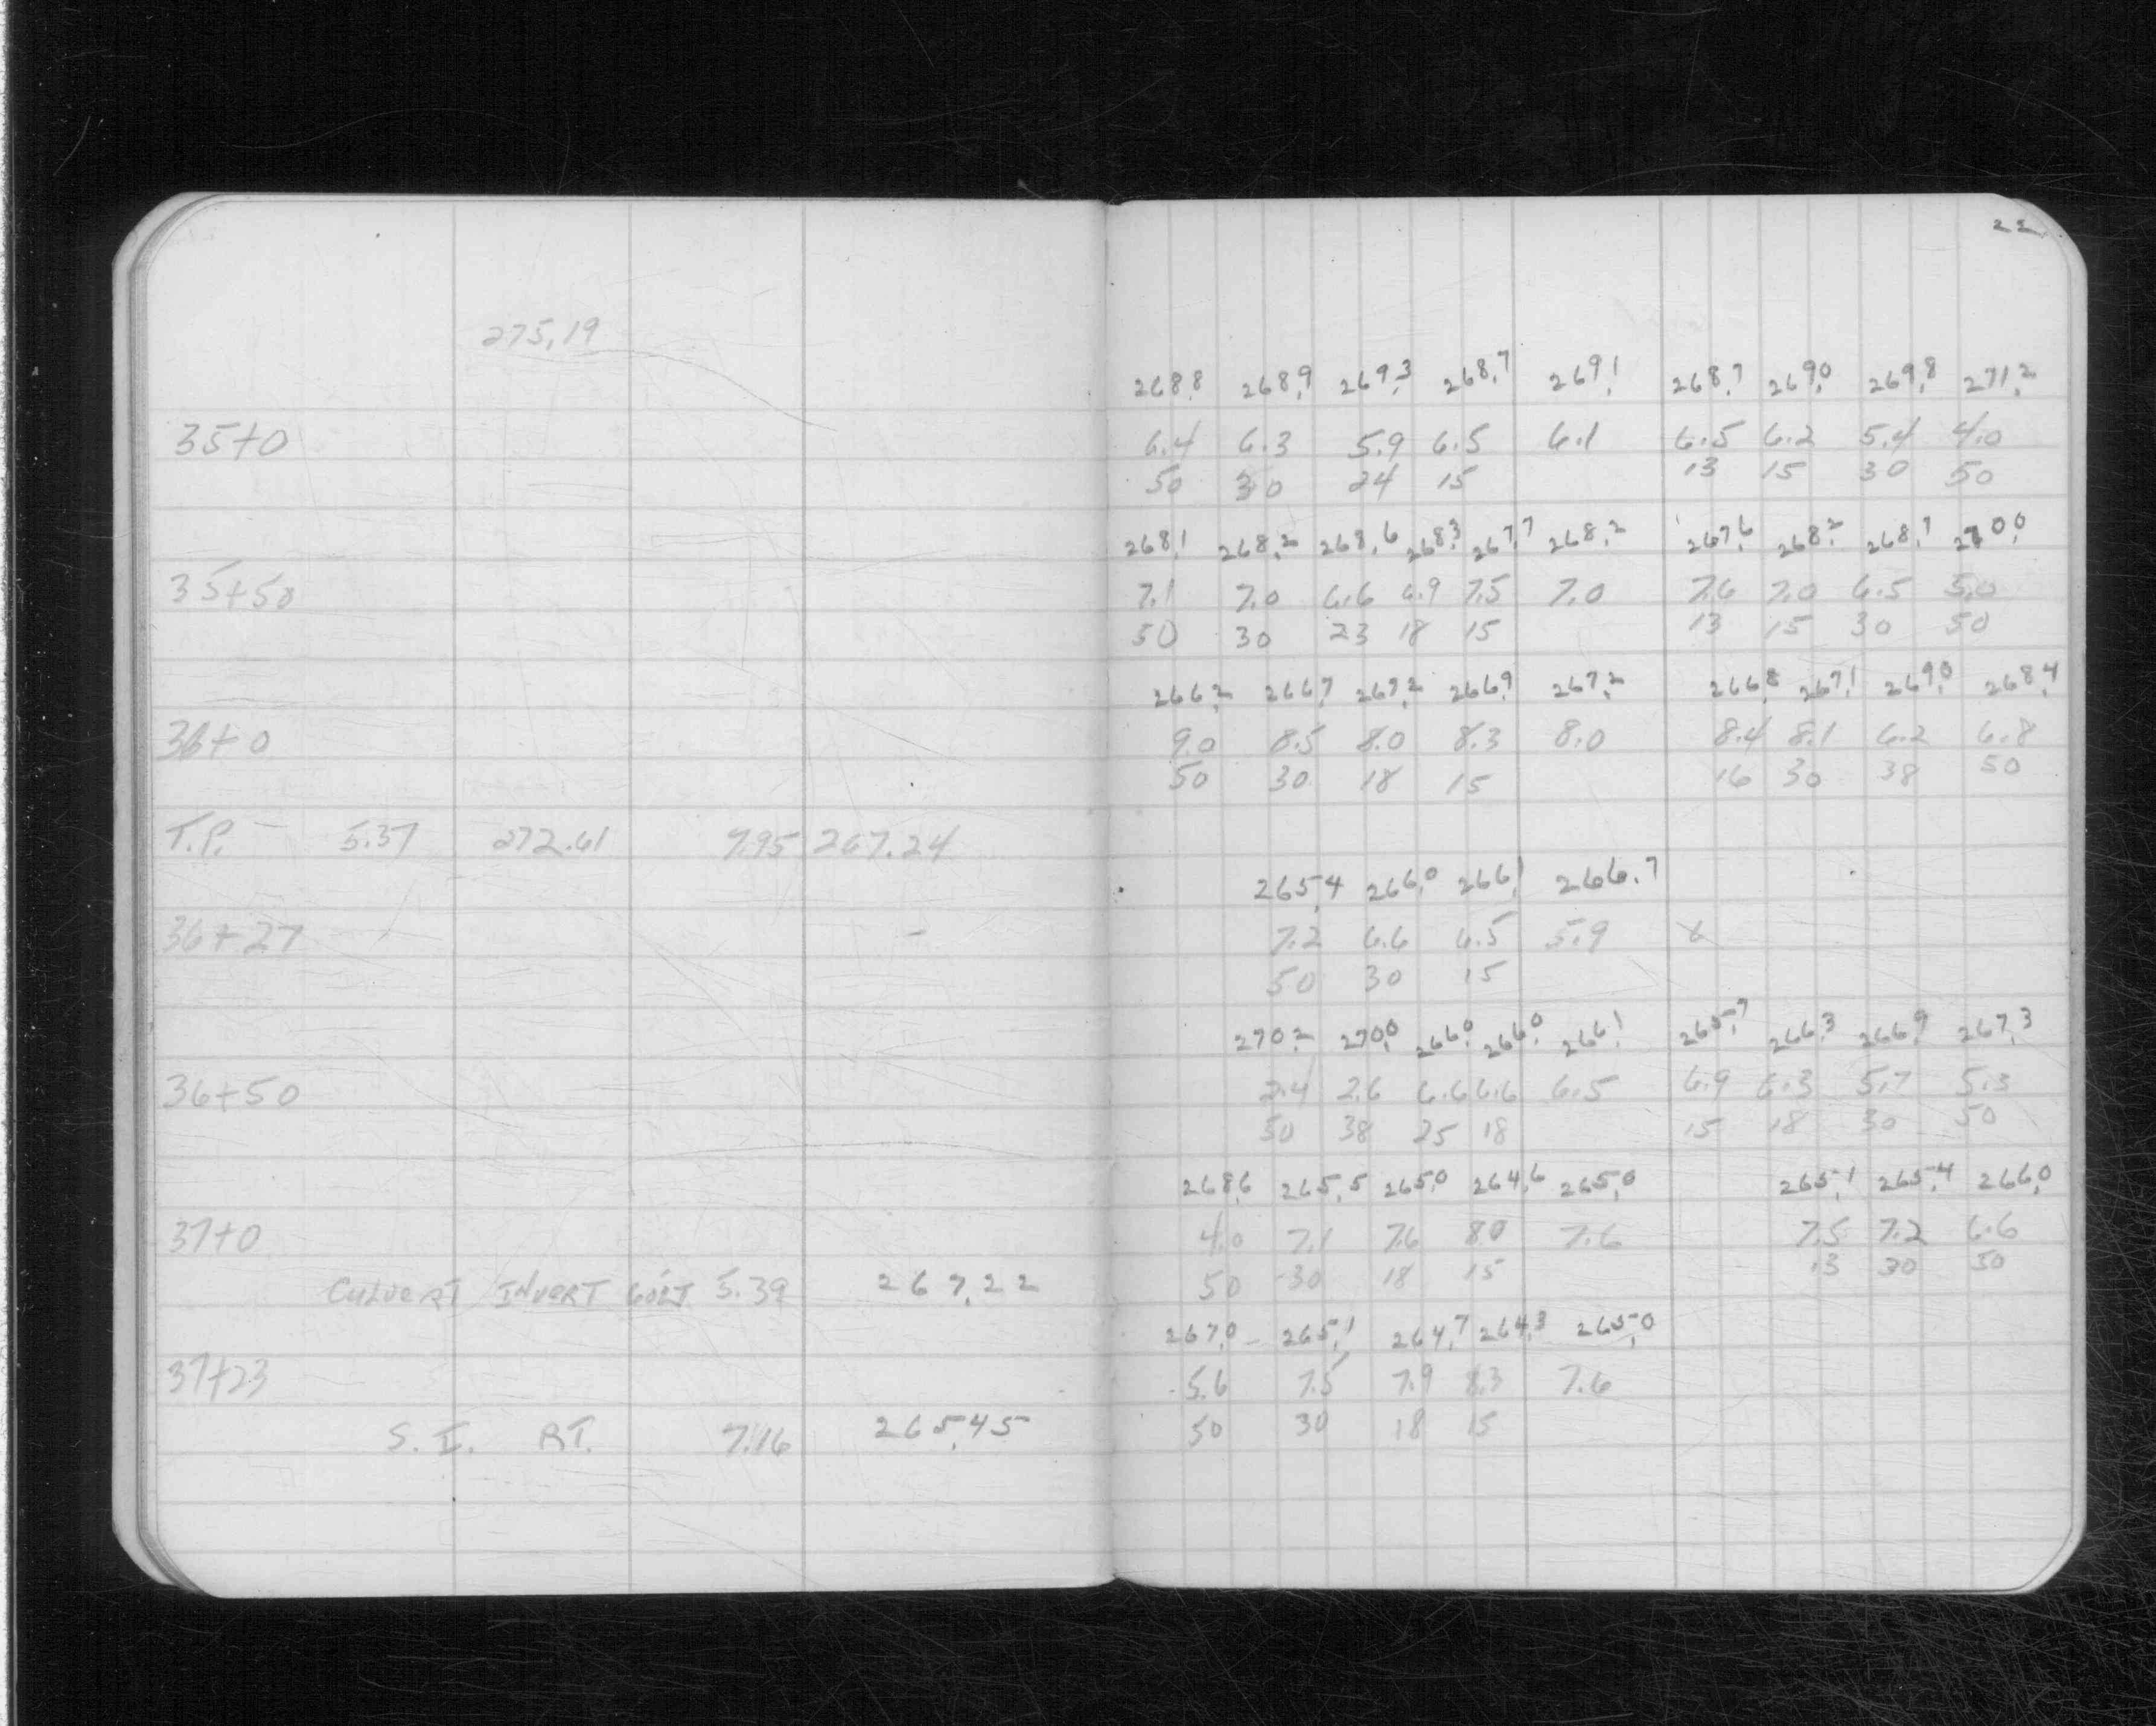 22
275.19
268.8 268.9 269.3 268.7 269.1 268.7 269.0 269.8 271.2
35+0 6.4 6.3 5.9 6.5 6.1 6.5 6.2 5.4 4.0
50 30 24 15 13 15 30 50
268.1 268.2 268.6 268.3 267.7 268.2 267.6 268.2 268.7 270.0
35+50 7.1 7.0 6.6 6.9 7.5 7.0 7.6 7.0 6.5 5.0
50 30 23 18 15 13 15 30 50
266.2 266.7 267.2 266.9 267.2 266.8 267.1 269.0 268.4
36+0 9.0 8.5 8.0 8.3 8.0 8.4 8.1 6.2 6.8
50 30 18 15 16 30 38 50
T.P. 5.37 272.61 7.95 267.24
265.4 266.0 266.1 266.7
36+27 7.2 6.6 6.5 5.9 x
50 30 15
270.2 270.0 266.0 266.0 266.1 265.7 266.3 266.9 267.3
36+50 2.4 2.6 6.6 6.6 6.5 6.9 6.3 5.7 5.3
50 38 25 18 15 18 30 50
268.6 265.5 265.0 264.6 265.0 265.1 265.4 266.0
37+0 4.0 7.1 7.6 8.0 7.6 7.5 7.2 6.6
CULVERT INVERT 5.39 267.22 50 30 18 15 13 30 50
267.0 265.1 264.7 264.3 265.0
37+23 5.6 7.5 7.9 8.3 7.6
S. I. RT. 7.16 265.45 50 30 18 15